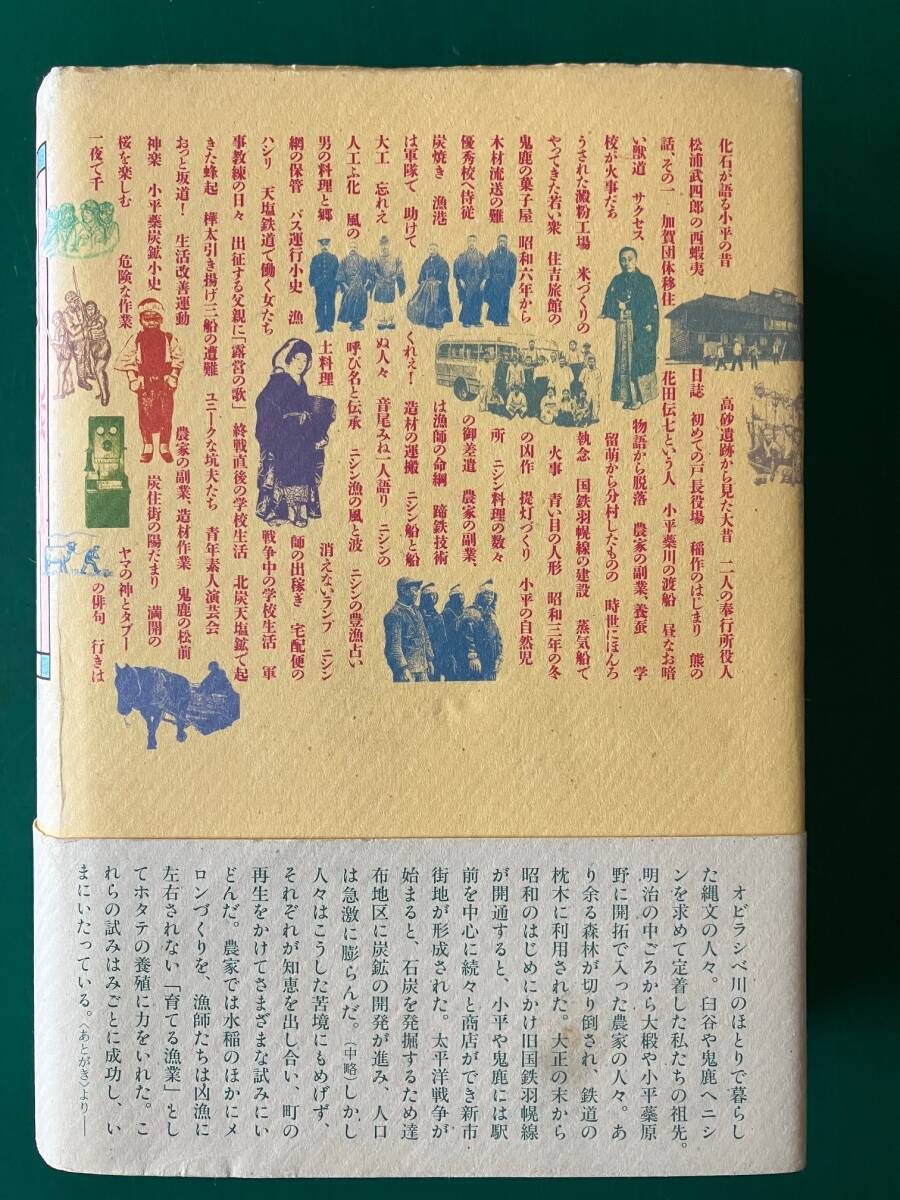 化石が語る小平の昔　高砂遺跡から見た大昔　二人の奉行所役人
松浦武四郎の西蝦夷　日誌　初めての戸長役場　稲作のはじまり　熊の
話、その一　加賀団体移住　花田伝七という人　小平蘂川の渡船　昼なお暗
い獣道　サクセス　物語から脱落　農家の副業、養蚕　学
校が火事だち　留萌から分村したものの　時世にほんろ
うされた澱粉工場　米づくりの　執念　国鉄羽幌線の建設　蒸気船で
やってきた若い衆　住吉旅館の　火事　青い目の人形　昭和三年の冬
鬼鹿の菓子屋　昭和六年から　の凶作　提灯づくり　小平の自然児
木材流送の難　所　ニシン料理の数々
優秀校へ侍従　の御差遣　農家の副業、
炭焼き　漁港　は漁師の命綱　蹄鉄技術
は軍隊で　助けて　くれぇ！　造材の運搬　ニシン船と船
大工　忘れえ　ぬ人々　音尾みね一人語り　ニシンの
人工ふ化　風の　呼び名と伝承　ニシン漁の風と波　ニシンの豊漁占い
男の料理と郷　土料理　消えないランプ　ニシン
網の保管　バス運行小史　漁　師の出稼ぎ　宅配便の
ハシリ　天塩鉄道で働く女たち　戦争中の学校生活　軍
事教練の日々　出征する父親に「露営の歌」　終戦直後の学校生活　北炭天塩鉱で起
きた蜂起　樺太引き揚げ三船の遭難　ユニークな坑夫たち　青年素人演芸会
おっと坂道！　生活改善運動　農家の副業、造材作業　鬼鹿の松前
神楽　小平蘂炭鉱小史　炭住街の陽だまり　満開の
桜を楽しむ　危険な作業　ヤマの神とタブー
一夜で千　の俳句　行きは
オビラシベ川のほとりで暮らし
た縄文の人々。臼谷や鬼鹿へニシ
ンを求めて定着した私たちの祖先。
明治の中ごろから大椴や小平蘂原
野に開拓で入った農家の人々。あ
り余る森林が切り倒され、鉄道の
枕木に利用された。大正の末から
昭和のはじめにかけ旧国鉄羽幌線
が開通すると、小平や鬼鹿には駅
前を中心に続々と商店ができ新市
街地が形成された。太平洋戦争が
始まると、石炭を発掘するため達
布地区に炭鉱の開発が進み、人口
は急激に膨らんだ。（中略）しかし
人々はこうした苦境にもめげず、
それぞれが知恵を出し合い、町の
再生をかけてさまざまな試みにい
どんだ。農家では水稲のほかにメ
ロンづくりを、漁師たちは凶漁に
左右されない「育てる漁業」とし
てホタテの養殖に力をいれた。こ
れらの試みはみごとに成功し、い
まにいたっている。〈あとがき〉より――